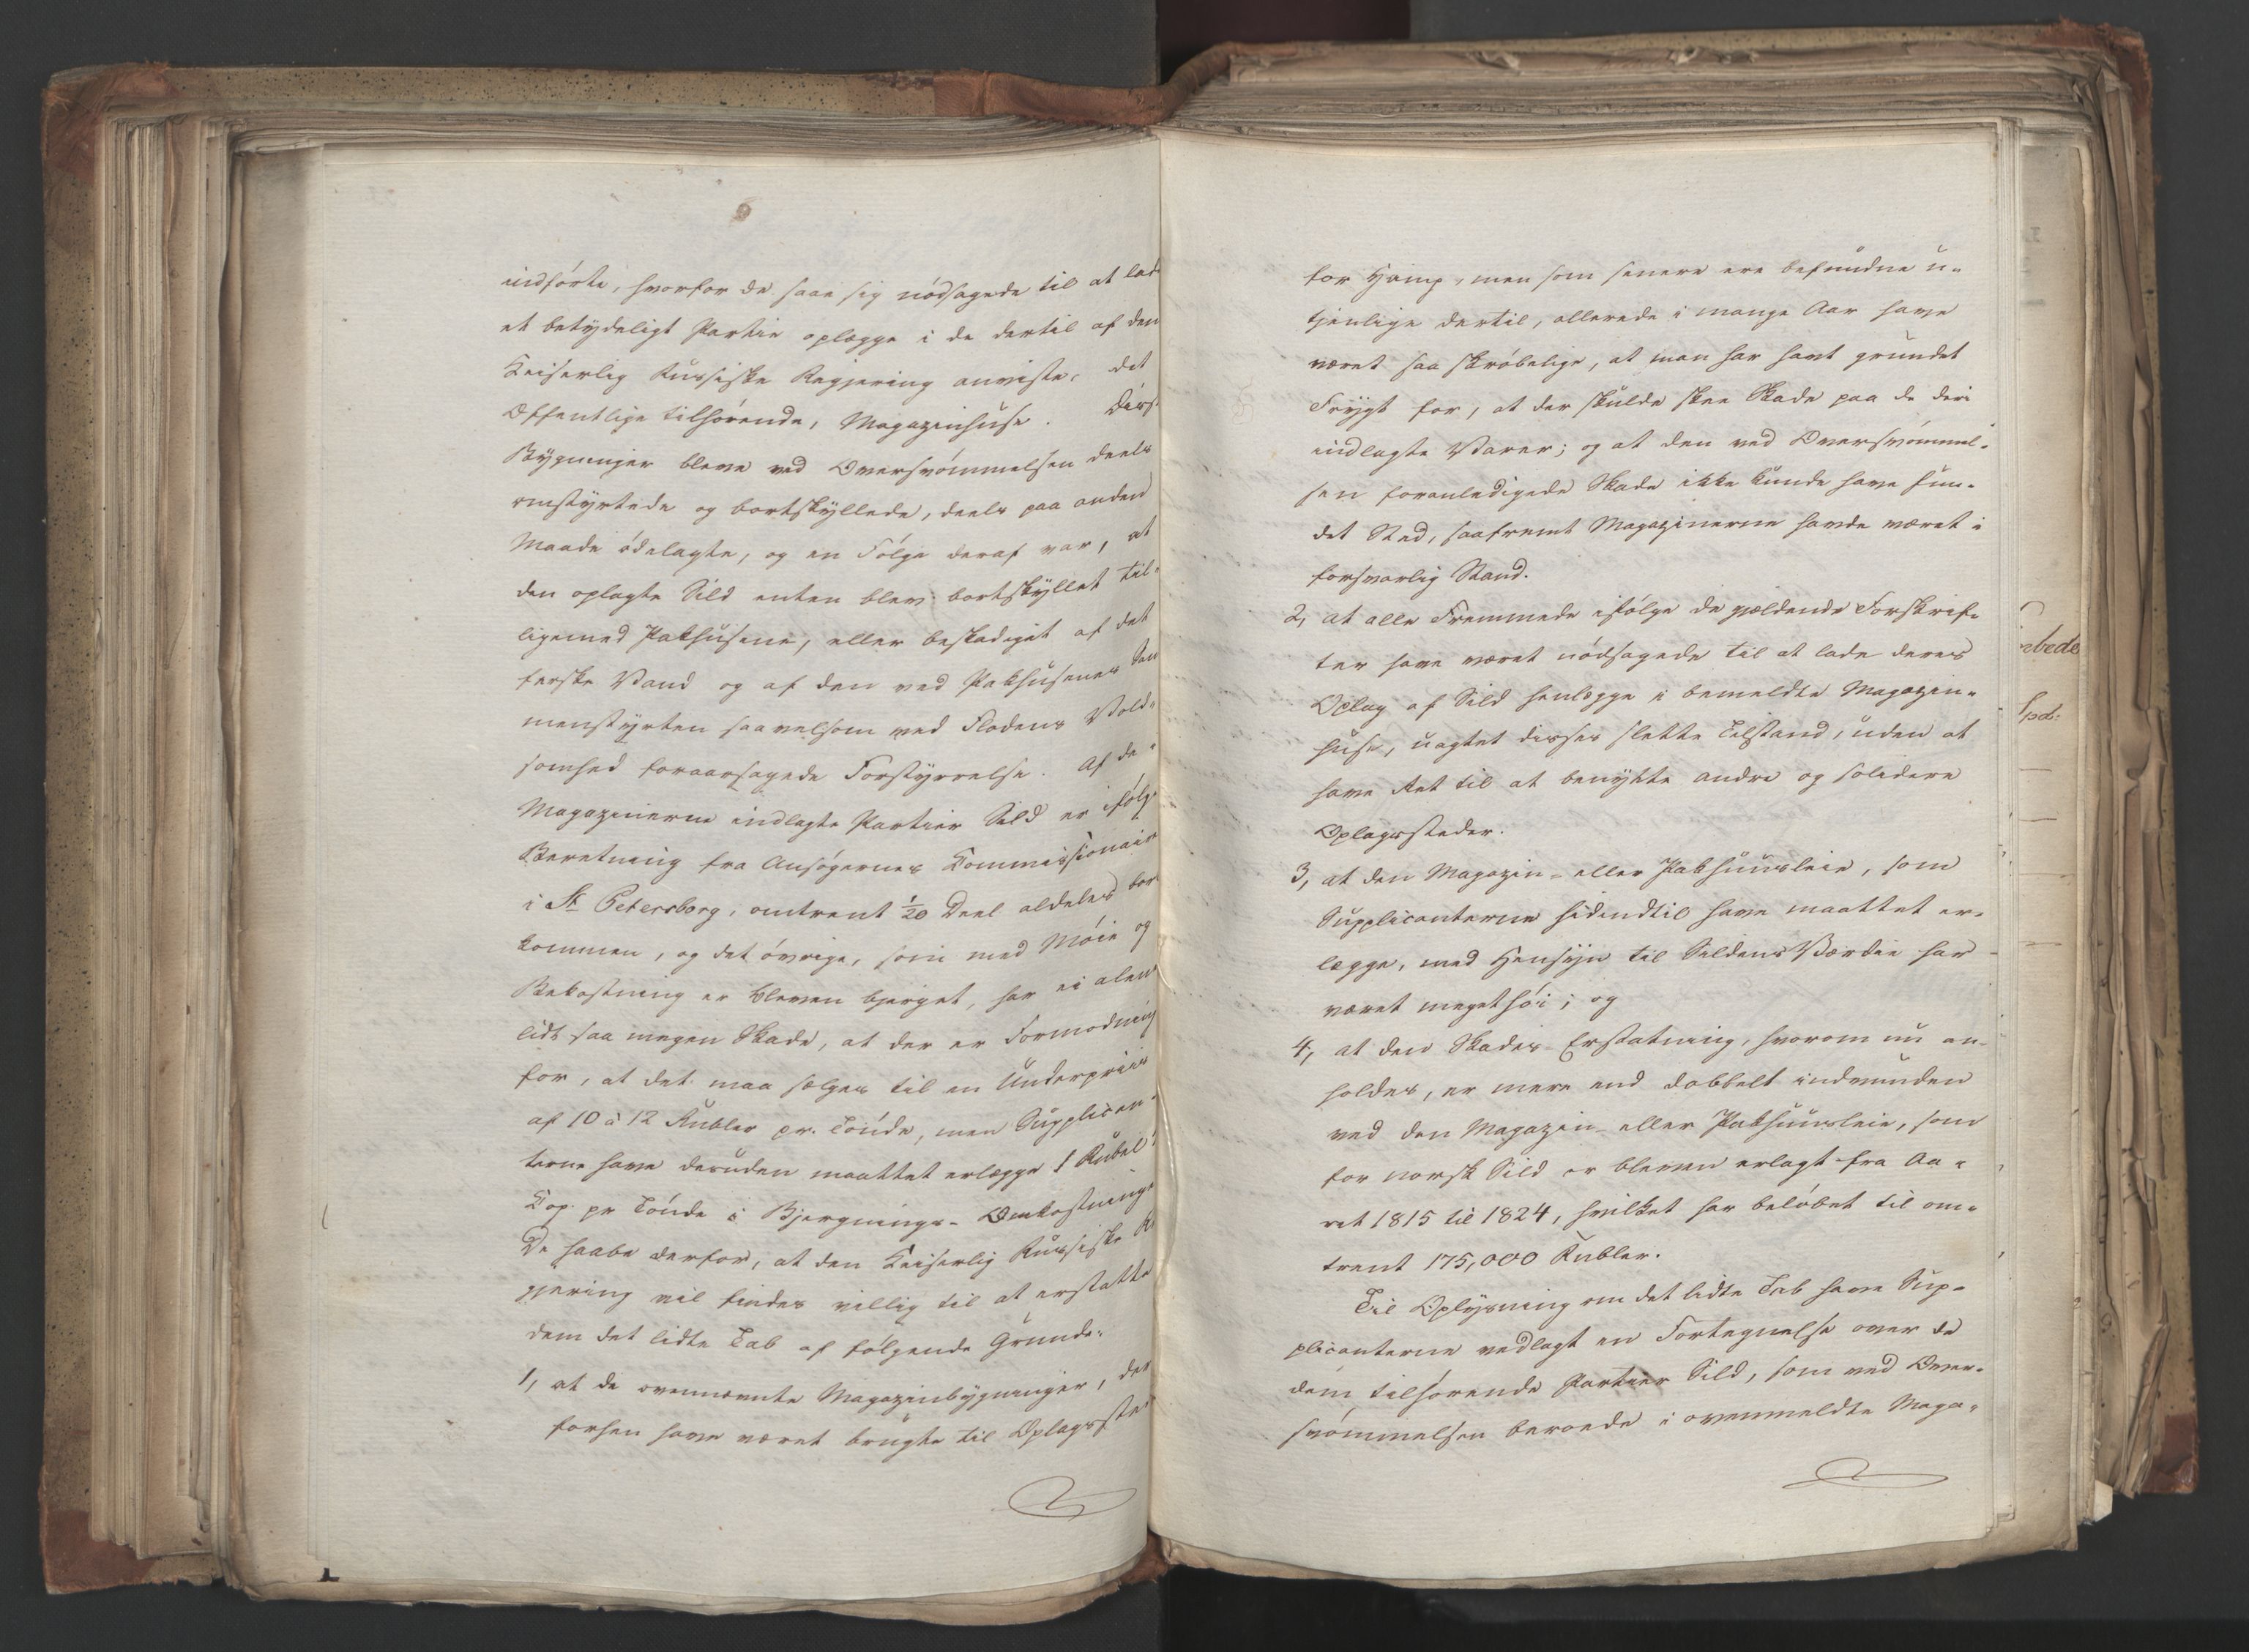 indførte, hvorfor de saae sig nødsagede til at lade
et betydeligt Partie oplægge i de dertil af den
Keiserlig Russiske Regjering anviste, det
Offentlige tilhørende, Magazinhuse. Disse
Bygninger bleve ved Oversvømmelsen deels
omstyrtede og bortskyllede, deels paa anden
Maade ødelagte, og en Følge deraf var, at
den oplagte Sild enten blev bortskyllet til-
ligemed Pakhusene, eller beskadiget af det
ferske Vand og af den ved Pakhusenes Sam
menstyrten saavelsom ved Flodens Vold-
somhed foraarsagede Forstyrrelse. Af de i
Magazinerne indlagte Partier Sild er ifølge
Beretning fra Ansøgernes Commissionair
i St Petersborg, omtrent 1/20 Deel aldeles bort
kommen, og det øvrige, som med Møie og
Bekostning er bleven bjerget, har ei alene
lidt saa megen Skade, at der er Formodning
for, at det maa sælges til en Underpriis
af 10 à 12 Rubler pr. Tønde, men Supplican-
terne have desuden maattet erlægge 1 Rubel
Cop. pr Tønde i Bjergnings-Omkostninger
De haabe derfor, at den Keiserlig Russiske Re
gjering vil findes villig til at erstatte
dem det lidte Tab af følgende Grunde:
1, at de ovennævnte Magazinbygninger, der
forhen have været brugte til Oplagssted
for Hamp, men som senere ere befundne u-
tjenlige dertil, allerede i mange Aar have
været saa skrøbelige, at man har havt grundet
Frygt for, at der skulde skee Skade paa de deri
indlagte Varer; og at den ved Oversvømmel-
sen foranledigede Skade ikke kunde have fun-
det Sted, saafremt Magazinerne havde været i
forsvarlig Stand.
2, at alle Fremmede ifølge de gjældende Forskrif-
ter have været nødsagede til at lade deres
Oplag af Sild henlægge i bemeldte Magazin-
huse, uagtet disses slette Tilstand, uden at
have Ret til at benytte andre og solidere
Oplagssteder.
3, at den Magazin- eller Pakhuusleie, som
Supplicanterne hidindtil have maattet er-
lægge, med Hensyn til Sildens Værdie har
været meget høi; og
4, at den Skades-Erstatning, hvorom nu an-
holdes, er mere end dobbelt indvunden
ved den Magazin- eller Pakhuusleie, som
for norsk Sild er bleven erlagt fra Aa-
ret 1815 til 1824, hvilket har beløbet til om-
trent 175,000 Rubler.
Til Oplysning om det lidte Tab have Sup-
plicanterne vedlagt en Fortegnelse over de
dem tilhørende Partier Sild, som ved Over-
svømmelsen beroede i ovenmeldte Maga-